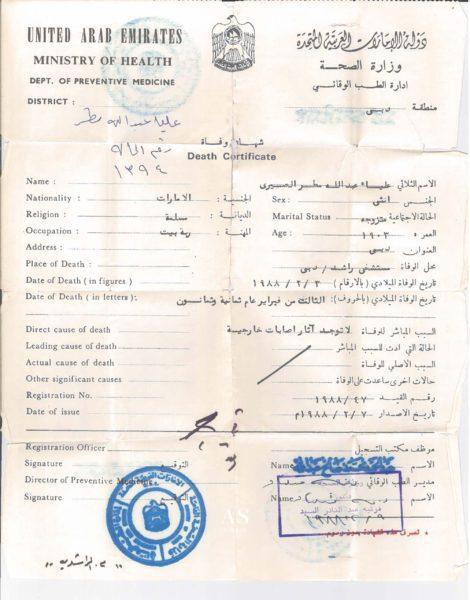 UNITED ARAB EMIRATES
MINISTRY OF HEALTH
DEPT. OF PREVENTIVE MEDICINE
DISTRICT :
دولة الإمارات العربية المتحدة
وزارة الصحة
ادارة الطب الوقائي
منطقة دبي
عليا عبدالله مطر
١٣٩٤
شهادة وفاة
Death Certificate
Name : الاسم الثلاثي علياء عبدالله مطر
Nationality : الجنسية : الامارات Sex : الجنس انثى
Religion : الديانة : مسلمة Marital Status : الحالة الاجتماعية متزوجه
Occupation : المهنة : ربة بيت Age : العمر ١٩٠٣
Address : العنوان دبي
Place of Death : محل الوفاة مستشفى راشد / دبي
Date of Death ( in figures ) تاريخ الوفاة الميلادي (بالأرقام) ١٩٨٨ / ٢ / ٣
Date of Death ( in letters ) تاريخ الوفاة الميلادي (بالحروف) : الثالث من فبراير عام ثمانية وثمانون
Direct cause of death السبب المباشر للوفاة لاتوجد آثار اصابات خارجية
Leading cause of death الحالة التي ادت للسبب المباشر
Actual cause of death السبب الأصلي للوفاة
Other significant causes حالات اخرى ساعدت على الوفاة
Registration No. رقم القيد ١٩٨٨/٤٧
Date of issue تاريخ الاصدار ١٩٨٨/٢/٧م
Registration Officer موظف مكتب التسجيل
Signature التوقيع Name الاسم
Director of Preventive Medicine مدير الطب الوقائي
Signature التوقيع Name الاسم
AS